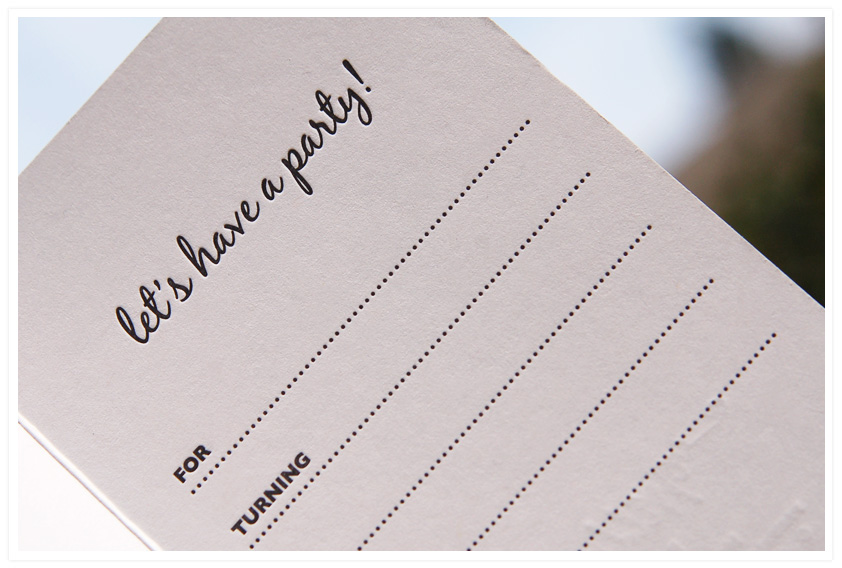 let's have a party!
FOR
TURNING